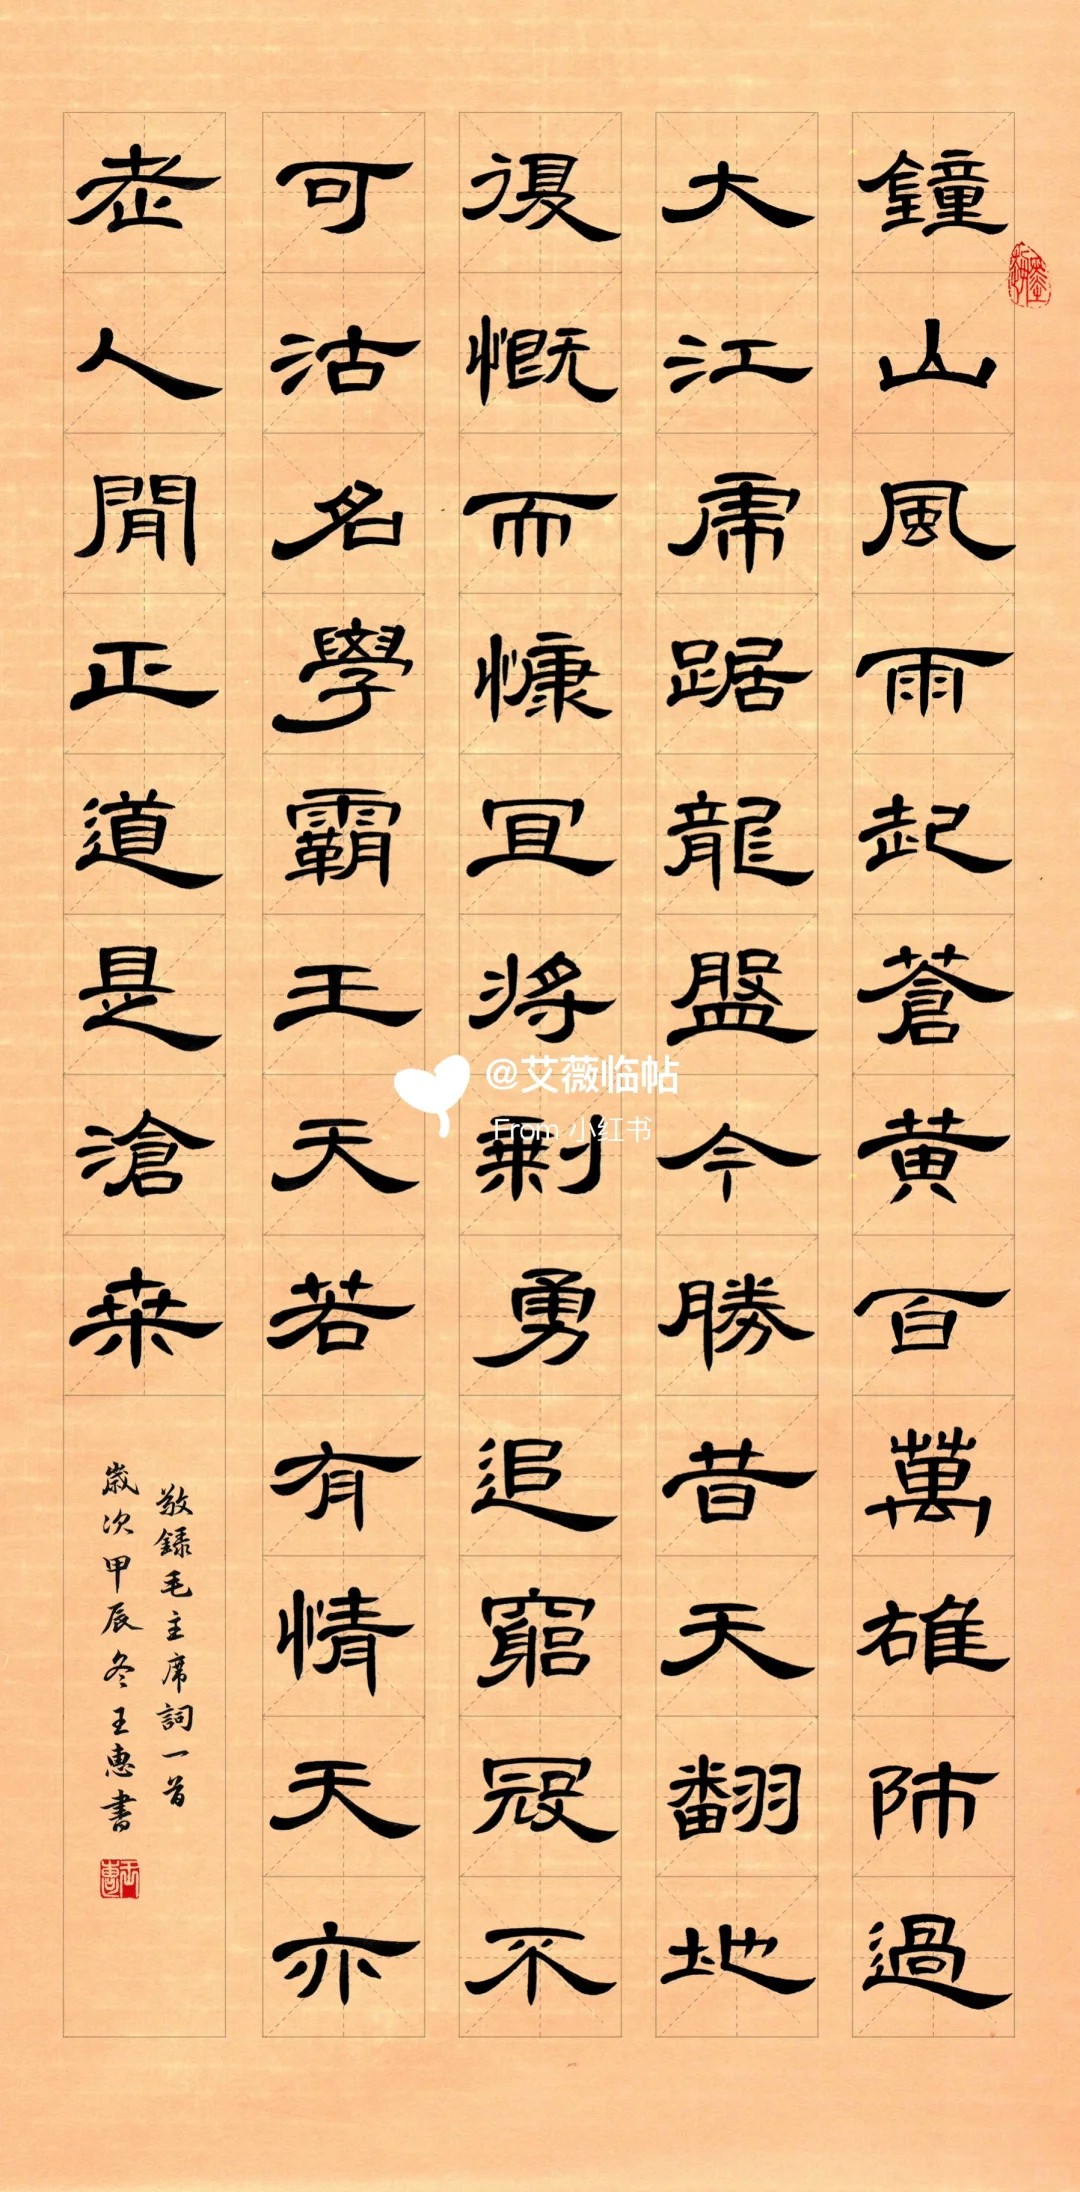 鐘山風雨起蒼黄百萬雄師過
大江虎踞龍盤今勝昔天翻地
復慨而慷宜將剩勇追窮寇不
可沽名學霸王天若有情天亦
老人閒正道是滄桑
敬録毛主席詞一首
歲次甲辰冬王惠書
王惠
@艾薇临帖
From 小红书